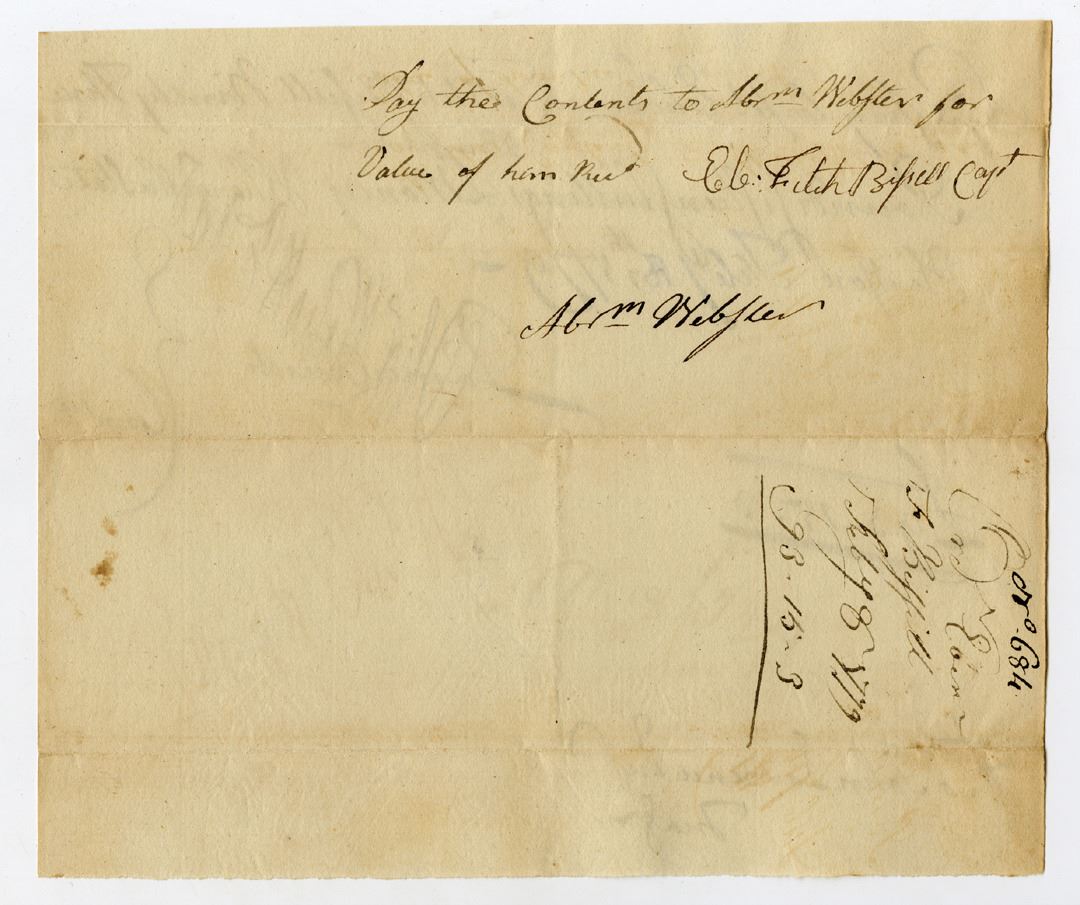 Pay the Contents to Abrm Webster for
Value of him Recd Eb: Fitch Bissell Capt
Abrm Webster
No. 684
Capt Ebenr
Fh Bissell
Feby 8 1779
93-15-5